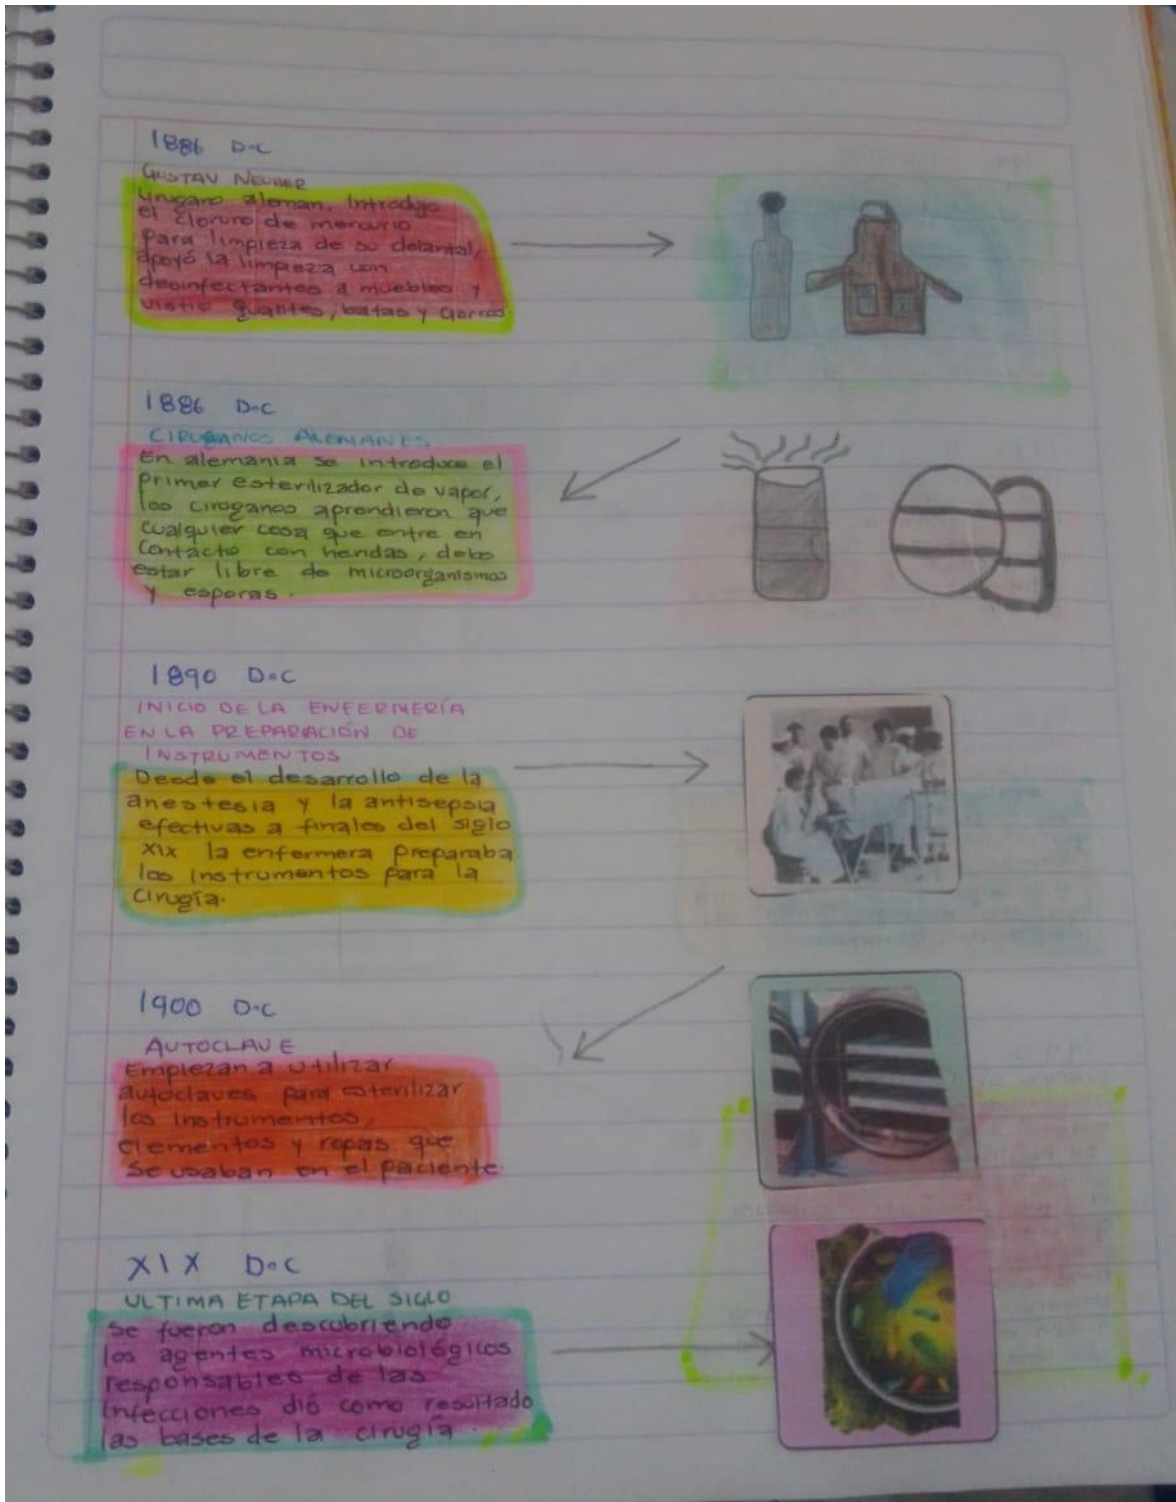 1886 D.C
GUSTAV NEUBER
Cirugano aleman, Introdujo
el cloruro de mercurio
para limpieza de su delantal,
apoyó la limpieza con
desinfectantes a muebles y
vistio guantes, batas y Gorros
1886 D.C
CIRUGANOS ALEMANES
En alemania se introduce el
primer esterilizador de vapor,
los ciruganos aprendieron que
cualquier cosa que entre en
contacto con heridas, debe
estar libre de microorganismos
y esporas.
1890 D.C
INICIO DE LA ENFERMERÍA
EN LA PREPARACIÓN DE
INSTRUMENTOS
Desde el desarrollo de la
anestesia y la antisepsia
efectivas a finales del siglo
XIX la enfermera preparaba
los instrumentos para la
cirugía.
1900 D.C
AUTOCLAVE
Empiezan a utilizar
autoclaves para esterilizar
los instrumentos,
elementos y ropas que
se usaban en el paciente.
XIX D.C
ULTIMA ETAPA DEL SIGLO
Se fueron descubriendo
los agentes microbiológicos
responsables de las
infecciones dió como resultado
las bases de la cirugía.